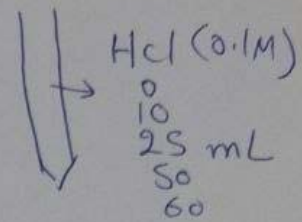 HCl (0.1M)
0
10
25 mL
50
60